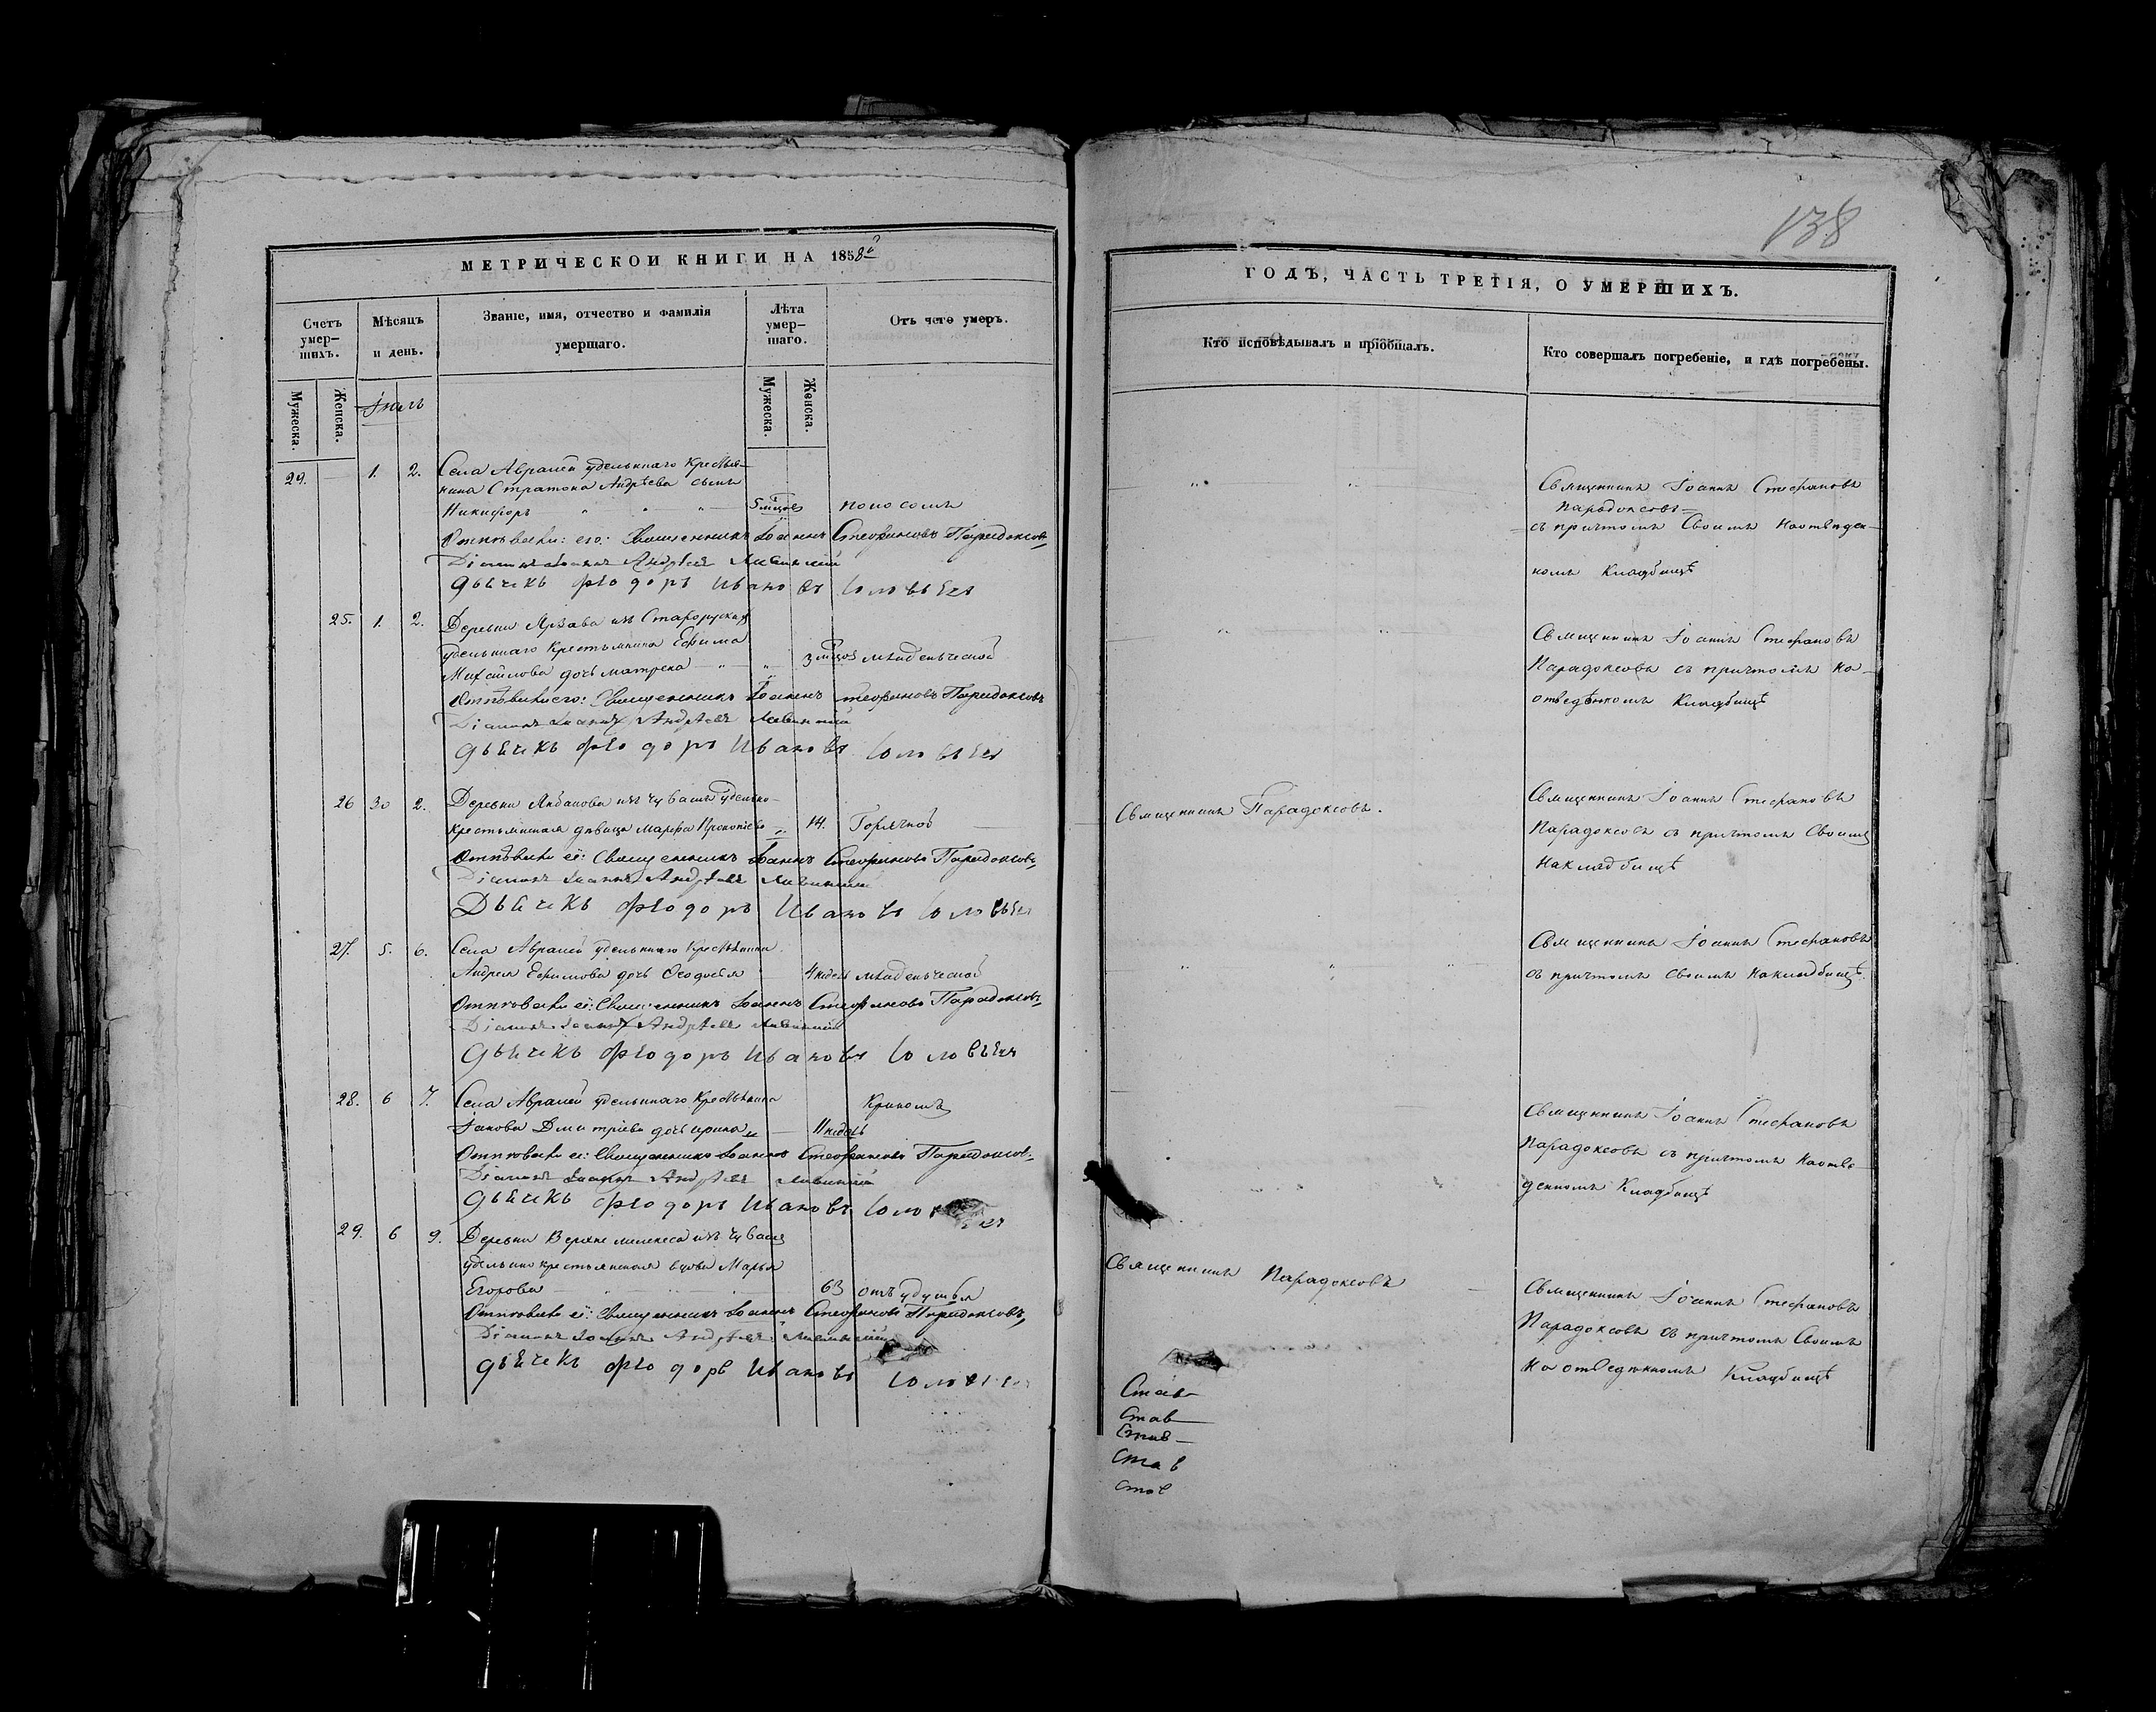 138
МЕТРИЧЕСКОЙ КНИГИ НА 1858й
Счетъ умерших. Мѣсяцъ и день. Званіе, имя, отчество и фамилія умершаго. Лѣта умершаго. Отъ чего умеръ.
Мужеска. Женска. Мужеска. Женска.
29. 1. 2. Села Авралей удельнаго крестья-
нина Стратона Андрѣева сынъ
Никифоръ 5 поносомъ
Отпѣвали его: Священникъ Іоаннъ Стефановъ Парадоксовъ
Діаконъ Іоаннъ Андреевъ
Дьячекъ Феодоръ Ивановъ
25. 1. 2. Деревни
удельнаго крестьянина Ефима
Михайлова дочь Матрена 3 младенческой
Отпѣвали его: Священникъ Іоаннъ Стефановъ Парадоксовъ
Діаконъ Іоаннъ Андреевъ
Дьячекъ Феодоръ Ивановъ
26 30 2. Деревни изъ чувашъ удельно-
крестьянская дѣвица Марфа Прокопіева 14. Горячкой
Отпѣвали ей: Священникъ Іоаннъ Стефановъ Парадоксовъ
Діаконъ Іоаннъ Андреевъ
Дьячекъ Феодоръ Ивановъ
27. 5. 6. Села Авралей удельнаго крестьянина
Андрея Ефимова дочь Феодосья 4 недель младенческой
Отпѣвали ей: Священникъ Іоаннъ Стефановъ Парадоксовъ
Діаконъ Іоаннъ Андреевъ
Дьячекъ Феодоръ Ивановъ
28. 6 7. Села Авралей удельнаго крестьянина Крикомъ
Іакова Дмитріева дочь Ирина 11 недель
Отпѣвали ей: Священникъ Іоаннъ Стефановъ Парадоксовъ
Діаконъ Іоаннъ Андреевъ
Дьячекъ Феодоръ Ивановъ
29. 6 9. Деревни Верхне мелекеса изъ чувашъ
удельно крестьянская вдова Марья
Егорова 63 отъ удушья
Отпѣвали ей: Священникъ Іоаннъ Стефановъ Парадоксовъ
Діаконъ Іоаннъ Андреевъ
Дьячекъ Феодоръ Ивановъ
ГОДЪ, ЧАСТЬ ТРЕТІЯ, О УМЕРШИХЪ.
Кто исповѣдывалъ и пріобщалъ. Кто совершалъ погребеніе, и гдѣ погребены.
Священникъ Іоаннъ Стефановъ
Парадоксовъ
съ причтомъ своимъ на отведен-
номъ кладбищѣ
Священникъ Іоаннъ Стефановъ
Парадоксовъ съ причтомъ на
отведенномъ кладбищѣ
Священникъ Парадоксовъ. Священникъ Іоаннъ Стефановъ
Парадоксовъ съ причтомъ своимъ
на кладбищѣ
Священникъ Іоаннъ Стефановъ
съ причтомъ своимъ на кладбищѣ.
Священникъ Іоаннъ Стефановъ
Парадоксовъ съ причтомъ на отве-
денномъ кладбищѣ
Священникъ Парадоксовъ Священникъ Іоаннъ Стефановъ
Парадоксовъ съ причтомъ своимъ
на отведенномъ кладбищѣ
Став
Став
Став
Став
Став